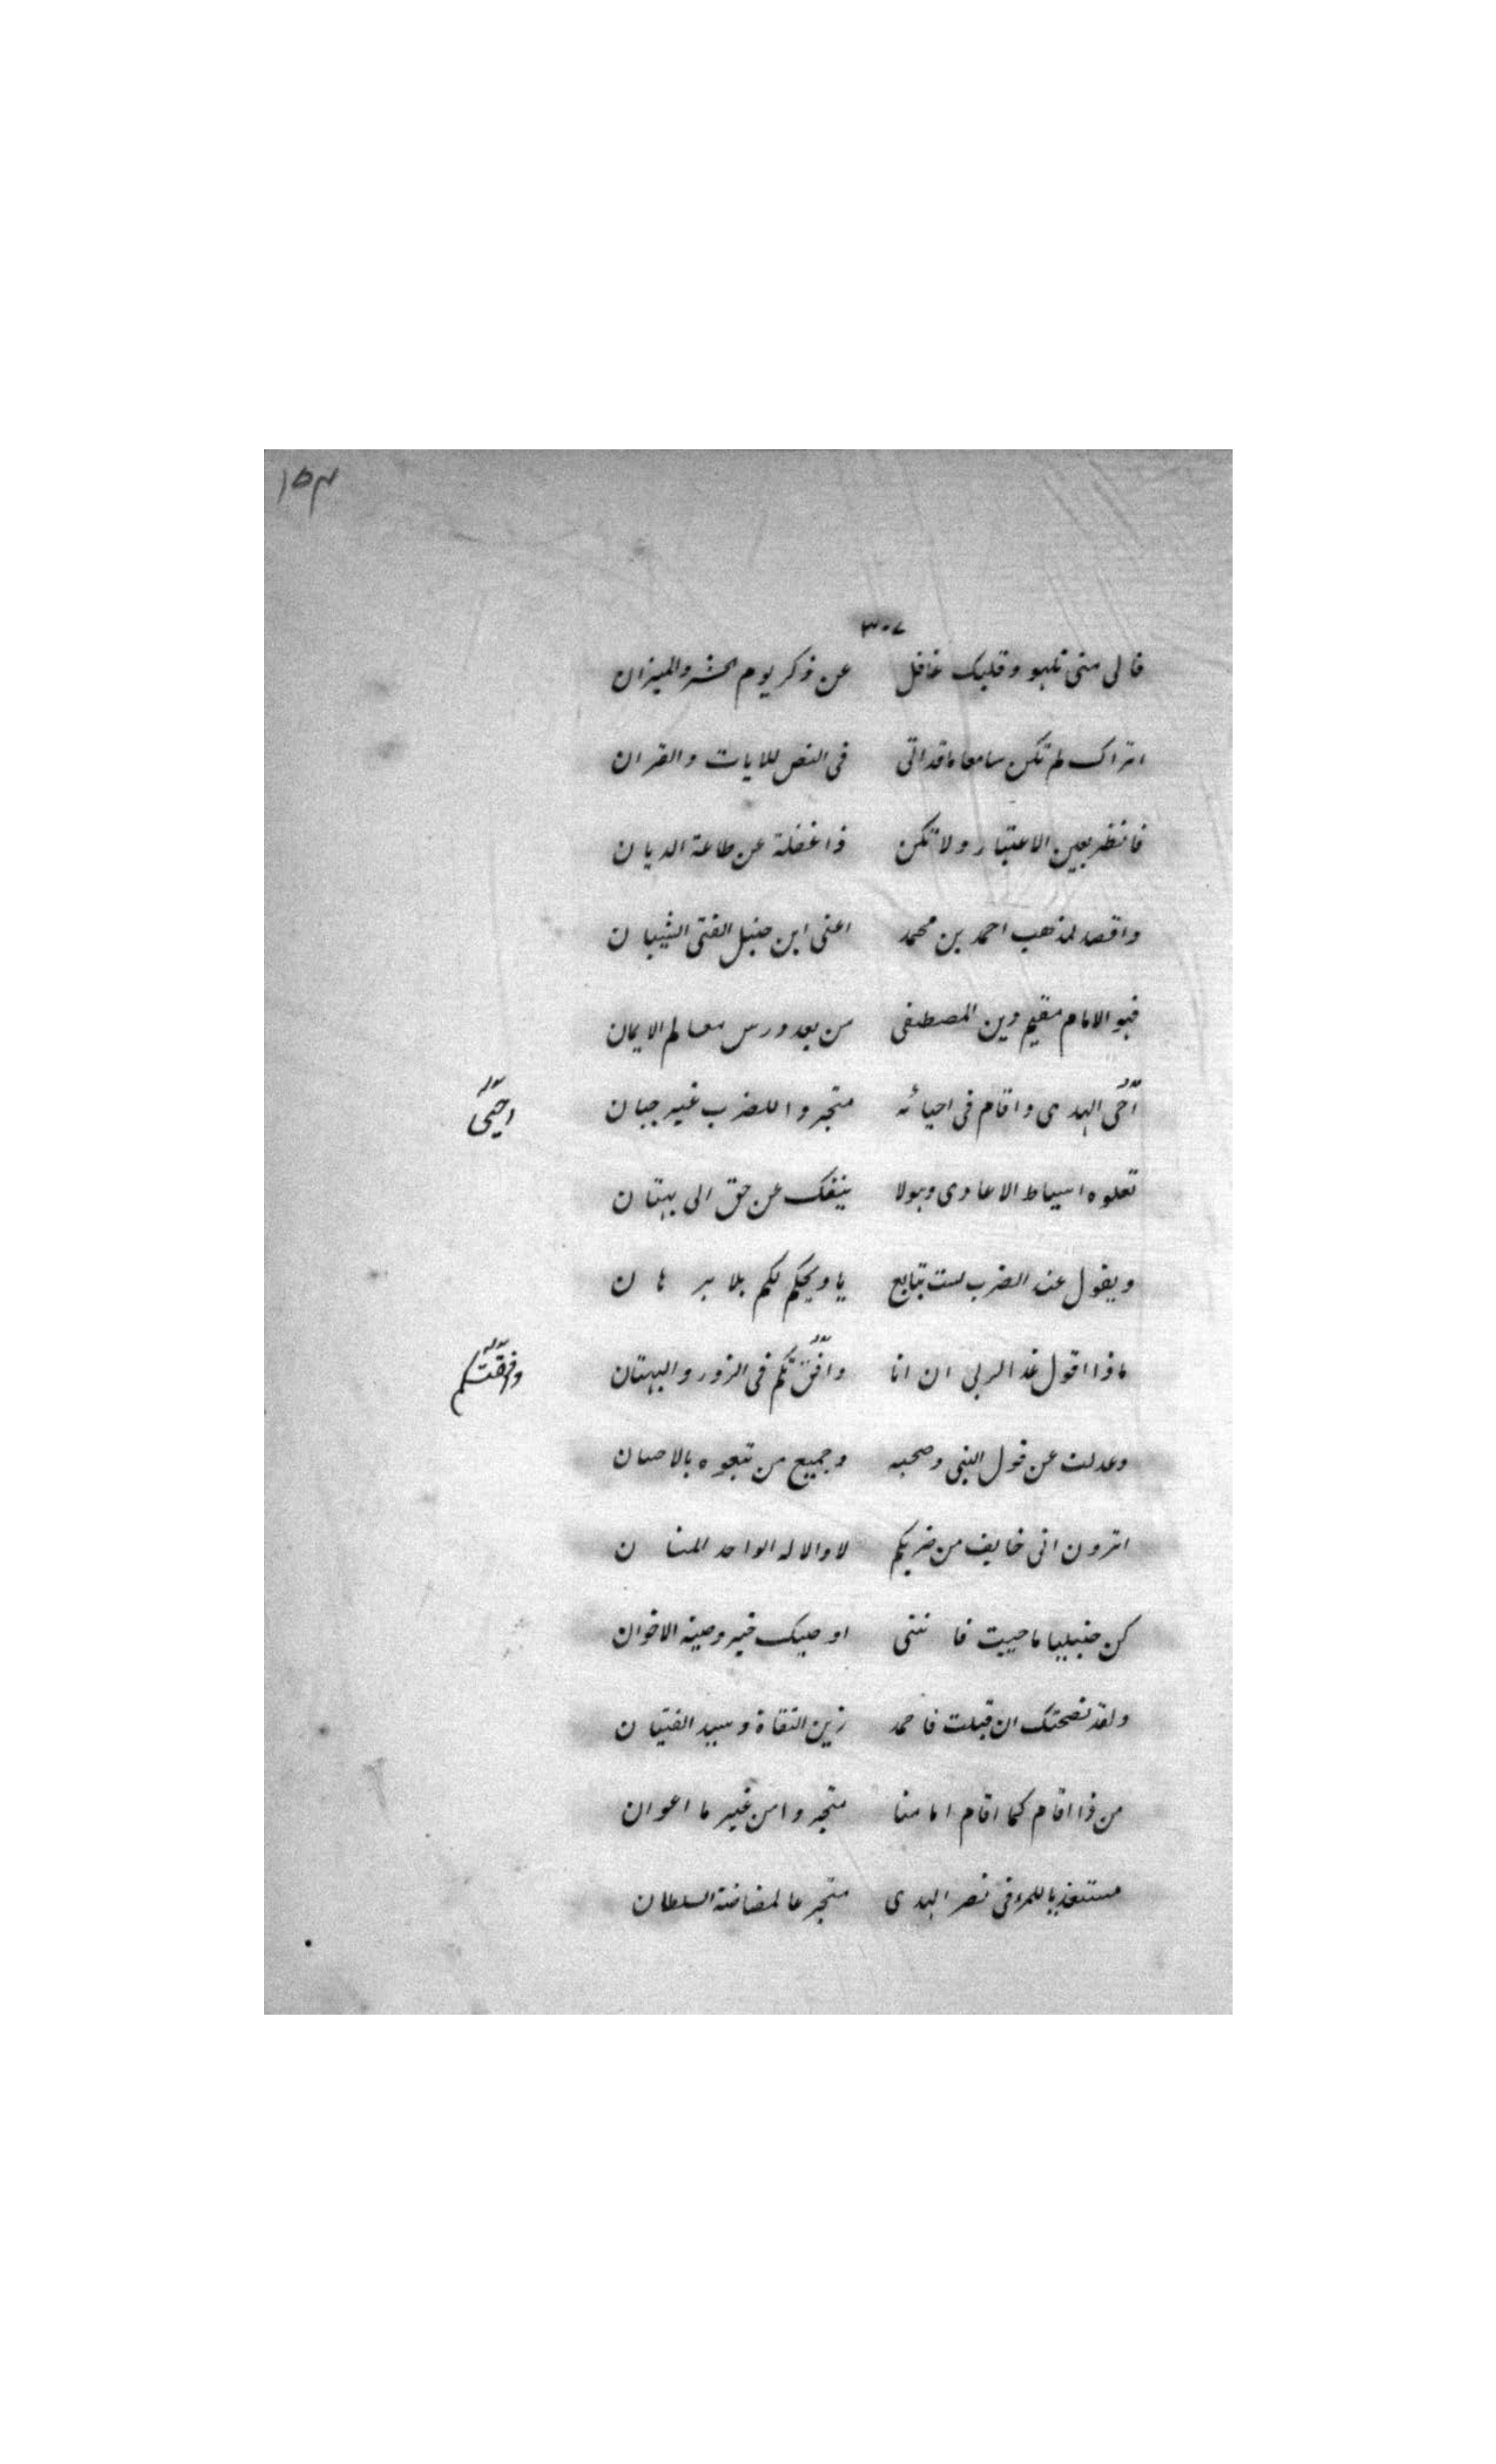 ١٥٣
٣٠٧
فالى متى تلهو وقلبك غافل عن ذكر يوم الحشر والميزان
اتراك لم تكن سامعا ماقد اتى فى النص للايات والقران
فانظر بعين الاعتبار ولا تكن ذا غفلة عن طاعة الديان
واقصد لمذهب احمد بن محمد اعنى ابن حنبل الفتى الشيبان
فهو الامام مقيم دين المصطفى من بعد درس معالم الايمان
احى الهدى واقام فى احيائه متجردا للضرب غير جبان
احيى
تعلوه اسياط الاعادى وهولا ينفك عن حق الى بهتان
ويقول عند الضرب لست بتابع يا ويحكم لكم بلا برهان
ماذا اقول غدا لربى ان انا وافقتكم فى الزور والبهتان
وفقتكم
وعدلت عن قول النبى وصحبه وجميع من تبعوه بالاحسان
اترون انى خايف من ضربكم لا والاله الواحد المنان
كن حنبليا ما حييت فاننى اوصيك خير وصية الاخوان
ولقد نصحتك ان قبلت فاحمد زين التقاة وسيد الفتيان
من ذا اقام كما اقام امامنا متجردا من غير ما اعوان
مستعذبا للمر فى نصر الهدى متجرعا لمضاضة السلطان